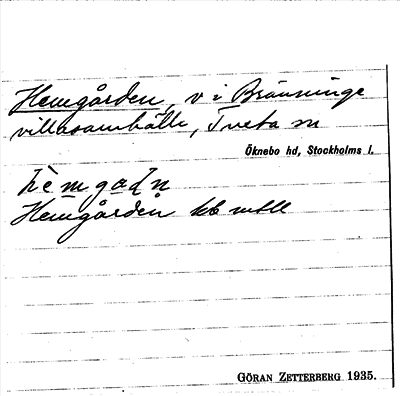 Hemgården, v i Bränninge
villasamhälle, Tveta sn
Öknebo hd, Stockholms l.
hèmgadn
Hemgården
GÖRAN ZETTERBERG 1935.